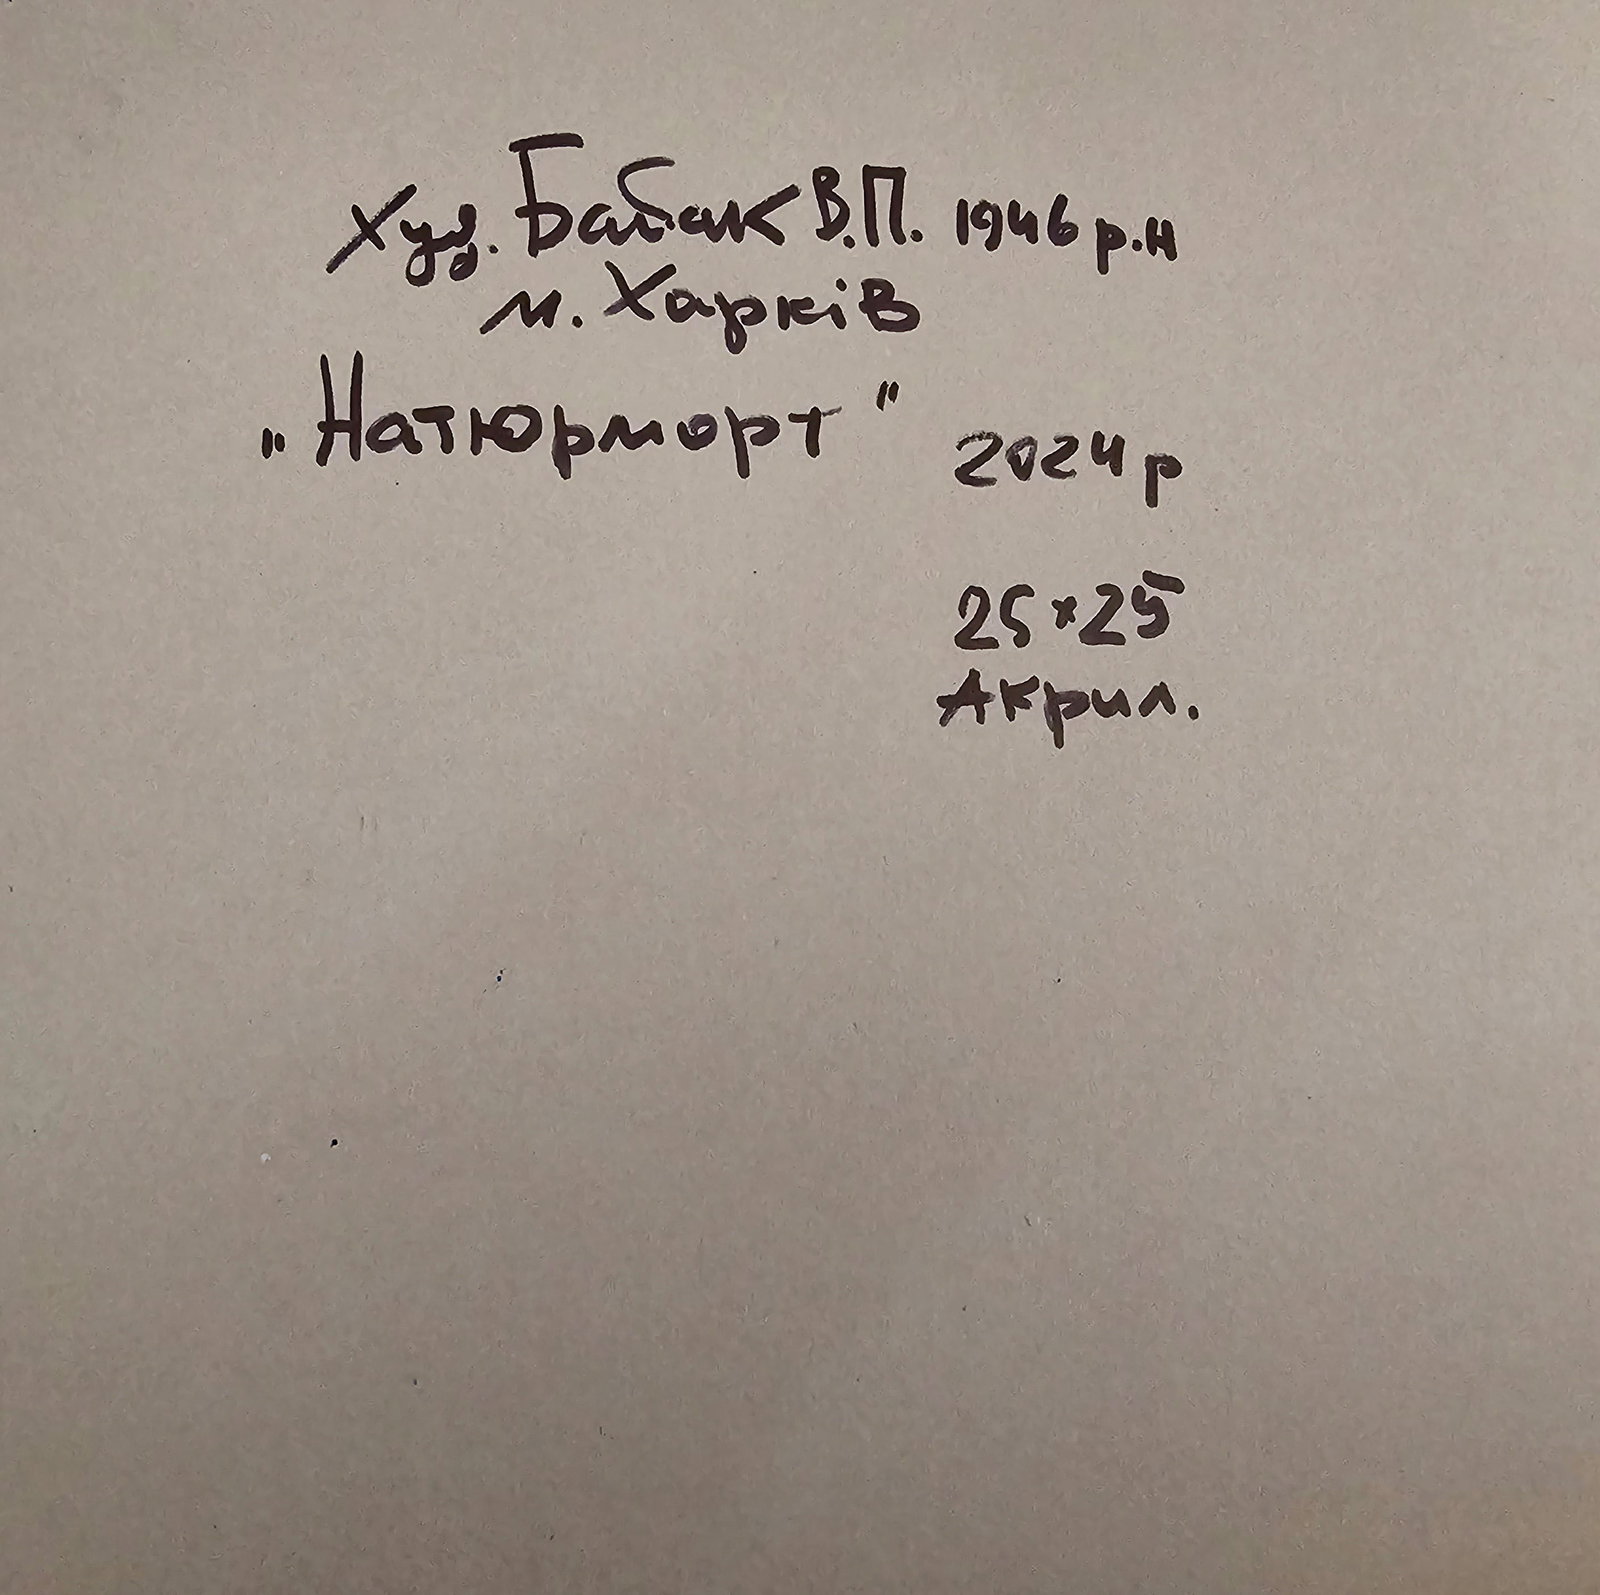 Худ. Бабак В.П. 1946 р.н
м. Харків
"Натюрморт" 2024 р
25×25
Акрил.